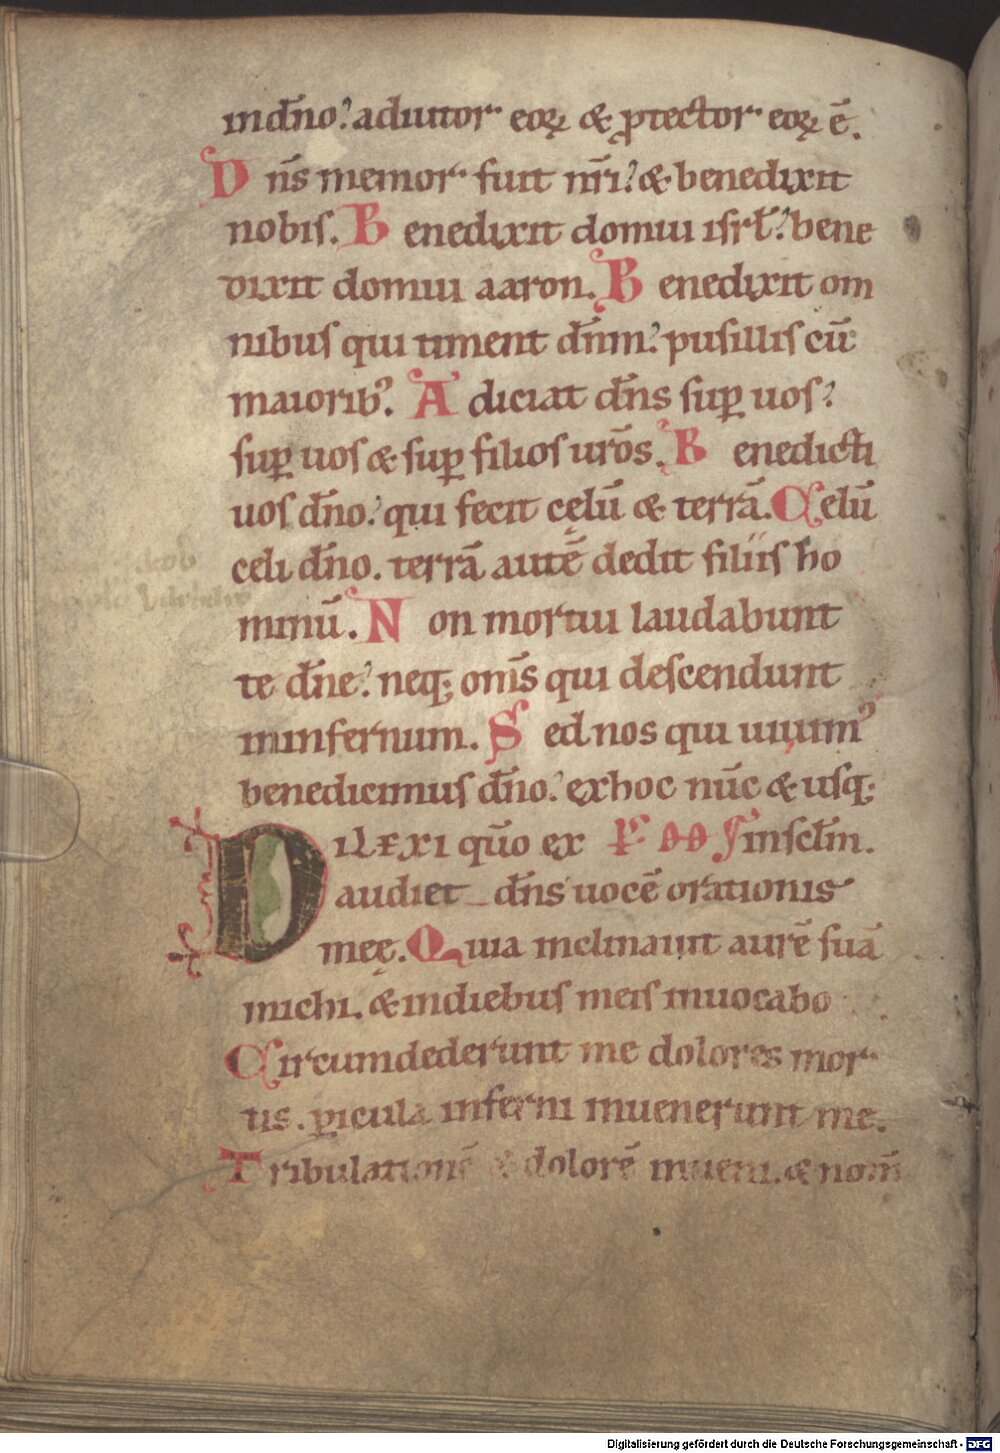 indn̄o? adiutor eoꝝ & ꝓtector eoꝝ ē.
Dn̄s memor fuit nr̄i? & benedixit
nobis. Benedixit domui isrl̄? bene
dixit domui aaron. Benedixit om
nibus qui timent dn̄m? pusillis cū
maioribꝰ. Adiciat dn̄s suꝑ uos?
suꝑ uos & suꝑ filios ur̄os. Benedicti
uos dn̄o? qui fecit cęlū & terrā. Celū
celi dn̄o. terrā autē dedit filiis ho
minū. Non mortui laudabunt
te dn̄e? neq; om̄s qui descendunt
ininfernum. Sed nos qui uiuimꝰ
benedicimus dn̄o? exhoc nūc & usq;
Dilexi qūo ex insclm̄.
audiet dn̄s uocē orationis
meę. Quia inclinauit aurē suā
michi. & indiebus meis inuocabo
Circumdederunt me dolores mor
tis. ꝑicula inferni inuenerunt me.
Tribulationē & dolorē inueni. & nom̄
Digitalisierung gefördert durch die Deutsche Forschungsgemeinschaft - DFG